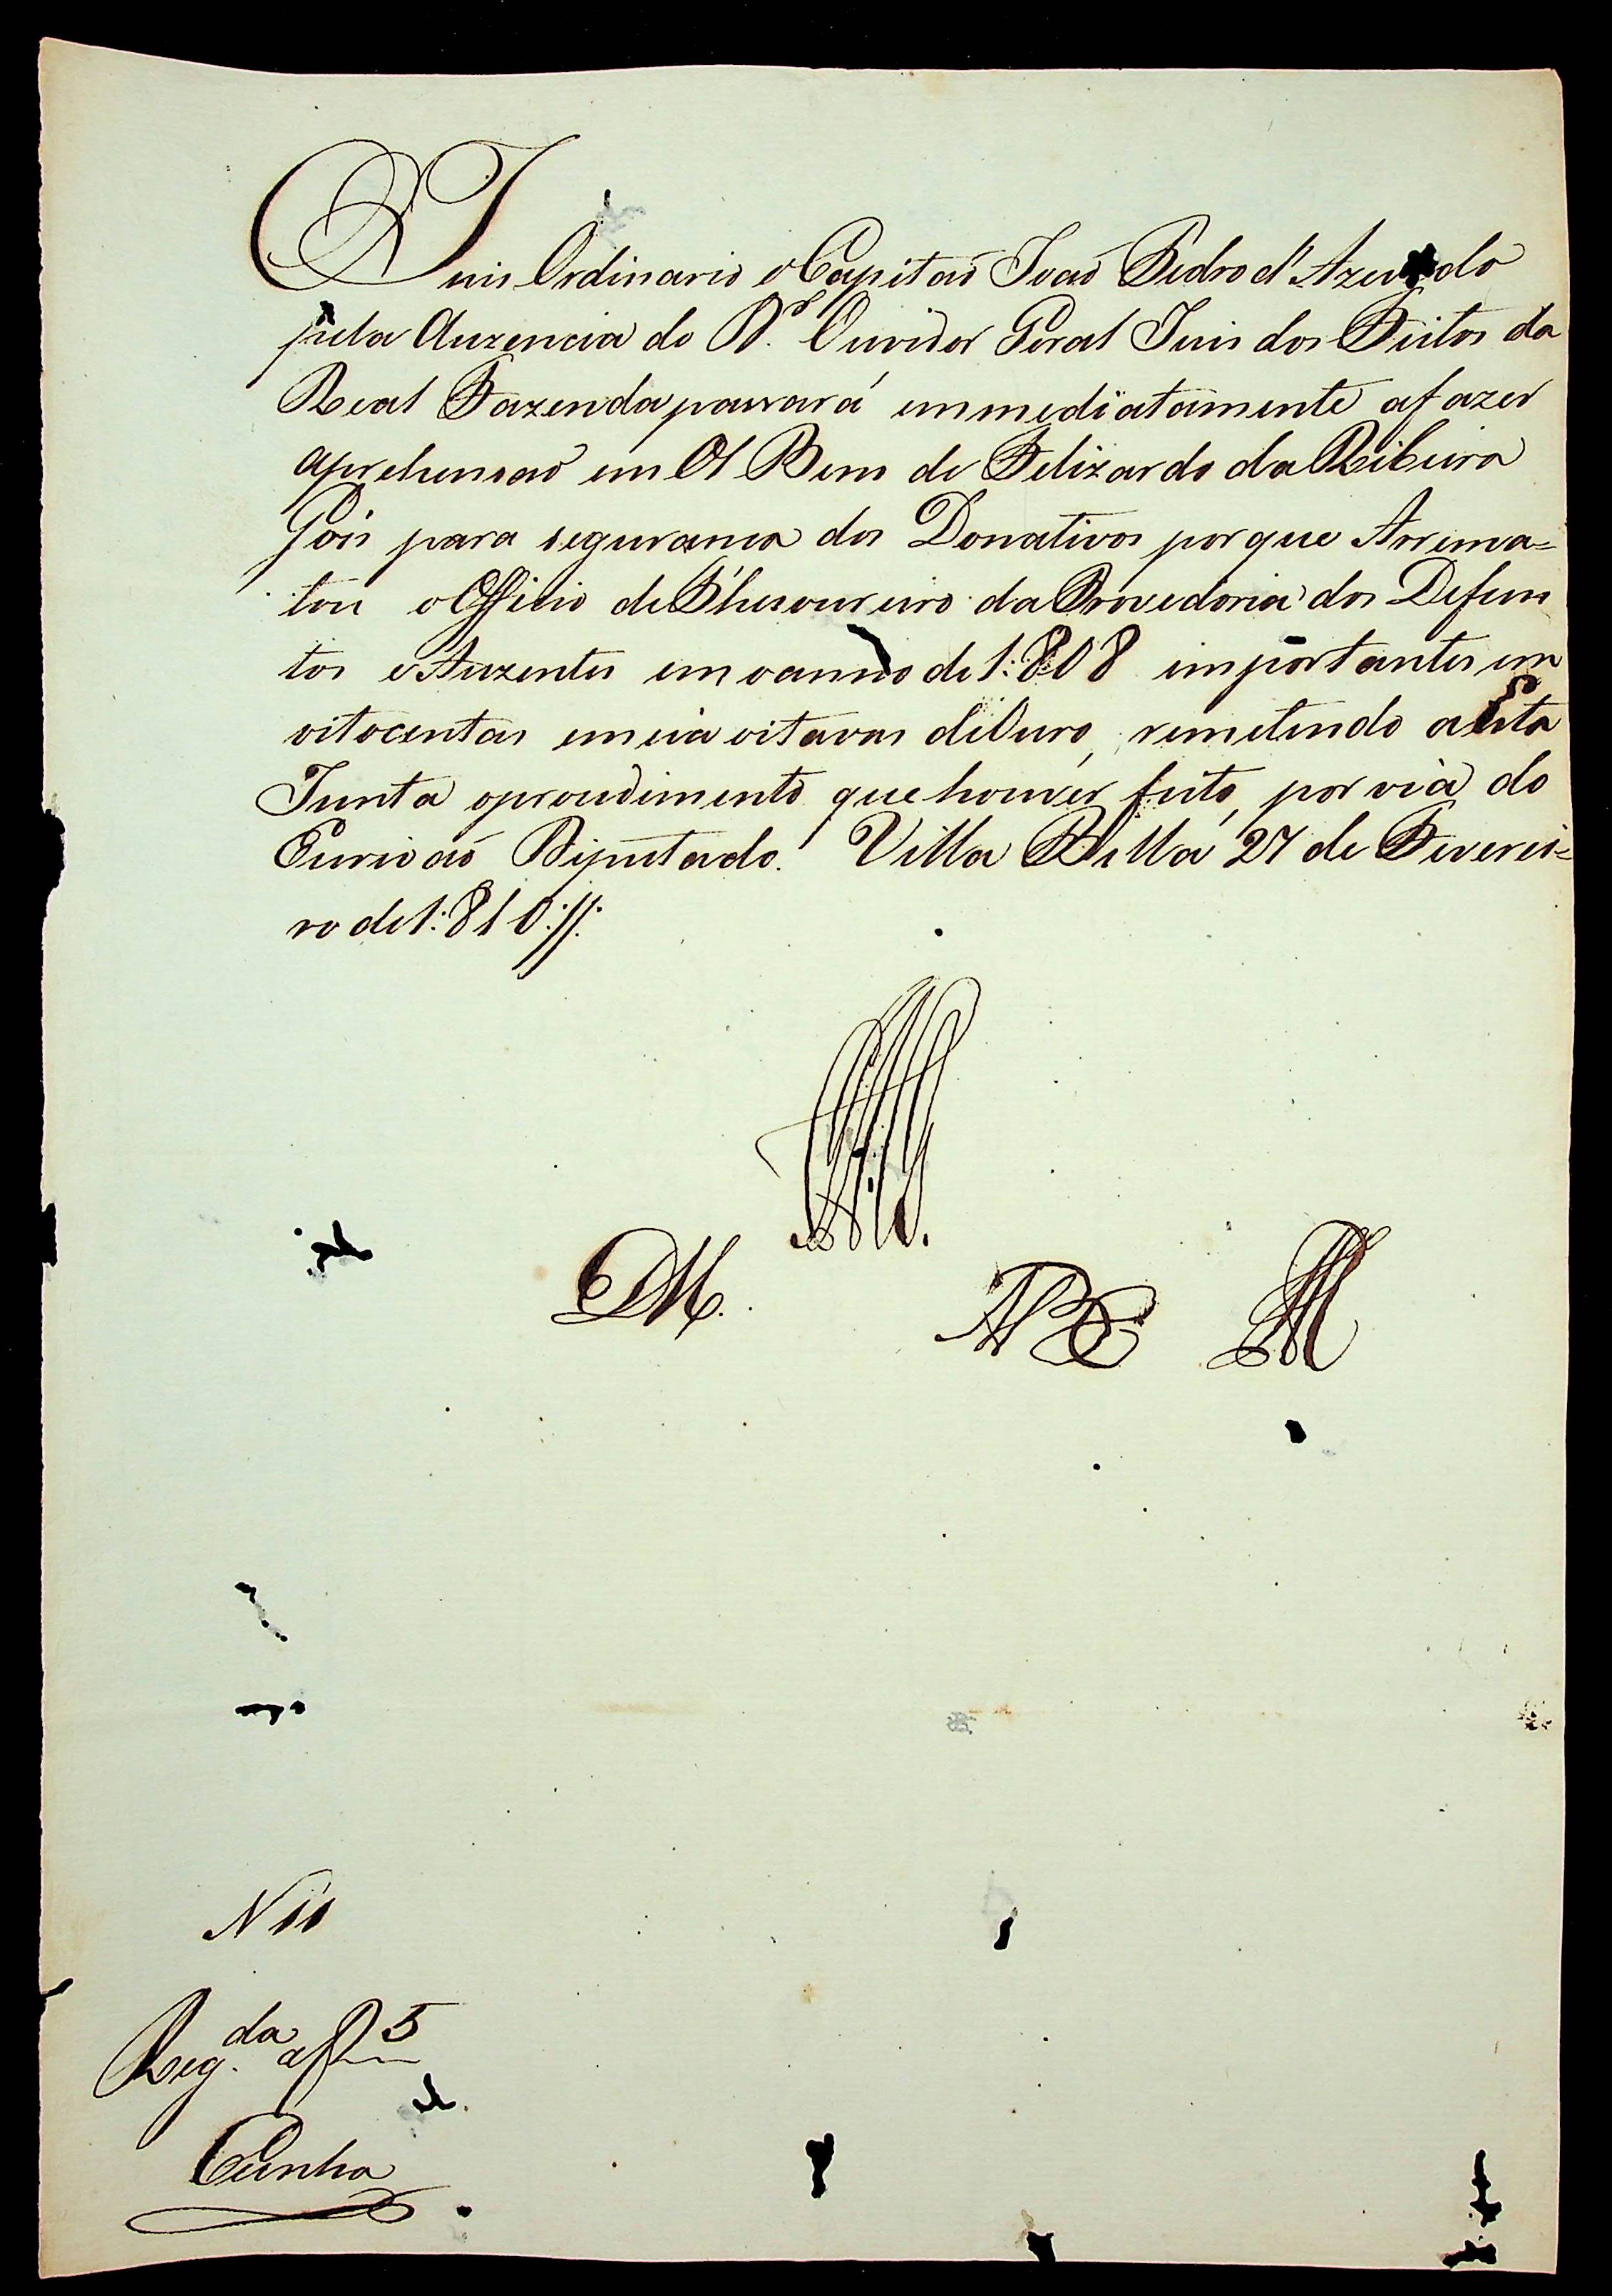 O Juis Ordinario o Capitaõ Joaõ Pedro d'Azevedo
pela Auzencia do D.or Ouvidor Geral Juis dos Feitos da
Real Fazenda passará immediatamente afazer
aprehensaõ em os Bens de Felizardo da Ribeira
Góis para seguransa dos Donativos por que Arrema=
tou o Officio de Thesoureiro da Provedoria dos Defun
tos e Auzentes em o anno de 1:808 importantes em
oitocentas e meia oitavas de Ouro, remetendo a esta
Junta oprocedimento que houver feito, por via do
Escrivaõ Deputado. Villa Bella 27 de Feverei=
ro de 1:810://:
N 11
Reg.da af 5
Cunha